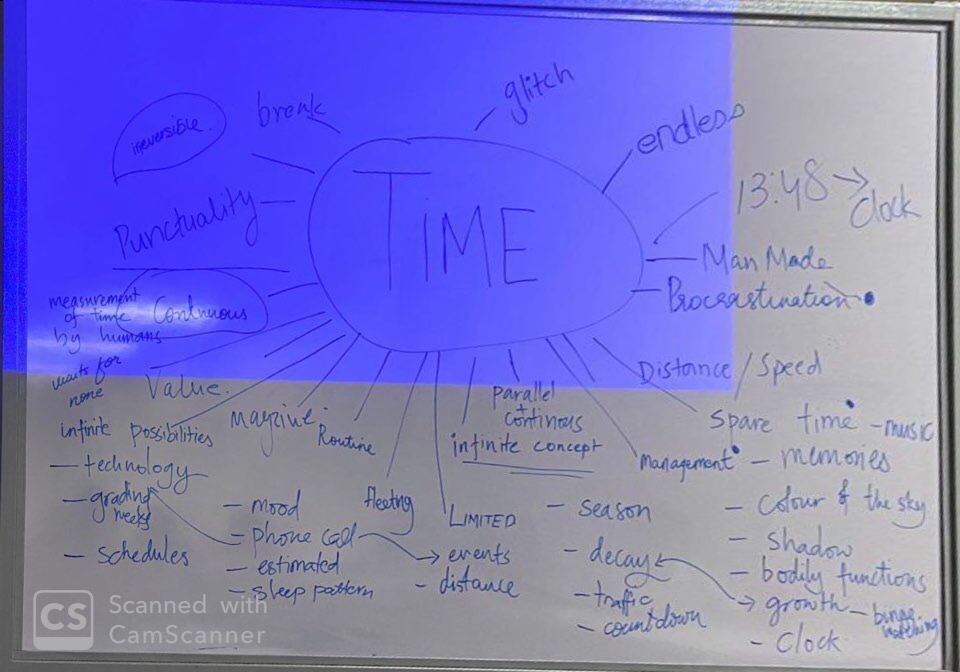 glitch
break
irreversible.
endless
13:48 → Clock
Punctuality
TIME
Man Made
Procrastination
measurement
of time
by humans
Continuous
waits for
none
Value.
Distance / Speed
Parallel
+
continous
infinite concept
Magzine
Routine
Infinite possibilities
Spare time - music
Management
- memories
- technology
- grading
weeks
- schedules
- mood
- phone call
- estimated
- sleep pattern
fleeting
LIMITED
→ events
- distance
- season
- decay
- traffic
- countdown
- colour of the sky
- shadow
- bodily functions
→ growth - binge
watching
- Clock
CS Scanned with
CamScanner